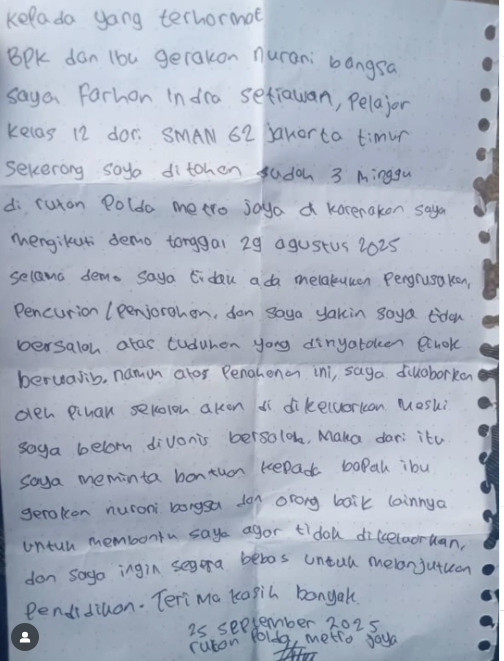 Kepada yang terhormat
BPK dan Ibu gerakan nurani bangsa
saya Farhan Indra setiawan, Pelajar
Kelas 12 dari SMAN 62 jakarta timur
Sekarang saya di tahan sudah 3 minggu
di rutan Polda metro jaya di karenakan saya
mengikuti demo tanggal 29 agustus 2025
selama demo saya tidak ada melakukan Pengrusakan,
Pencurian / Penjarahan, dan saya yakin saya tidak
bersalah atas tuduhan yang dinyatakan Pihak
berwajib. namun atas Penahanan ini, saya dikabarkan
oleh Pihak sekolah akan di dikeluarkan Meski
saya belum divonis bersalah. Maka dari itu
saya meminta bantuan kepada bapak ibu
gerakan nurani bangsa dan orang baik lainnya
untuk membantu saya agar tidak dikeluarkan,
dan saya ingin segera bebas untuk melanjutkan
Pendidikan. Terima kasih banyak
25 september 2025
rutan Polda, metro jaya